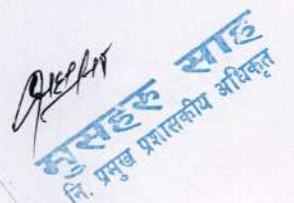 मुसहरु साह
नि. प्रमुख प्रशासकीय अधिकृत